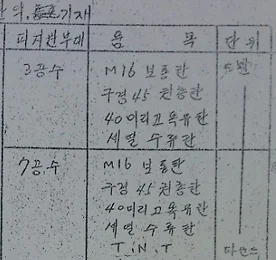 기재
피지원부대 품 목 단위
3공수 M16 보통탄 5발
구경 45 권총탄
40미리고폭유탄
세열 수류탄
7공수 M16 보통탄
구경 45 권총탄
40미리고폭유탄
세열 수류탄
T.N.T